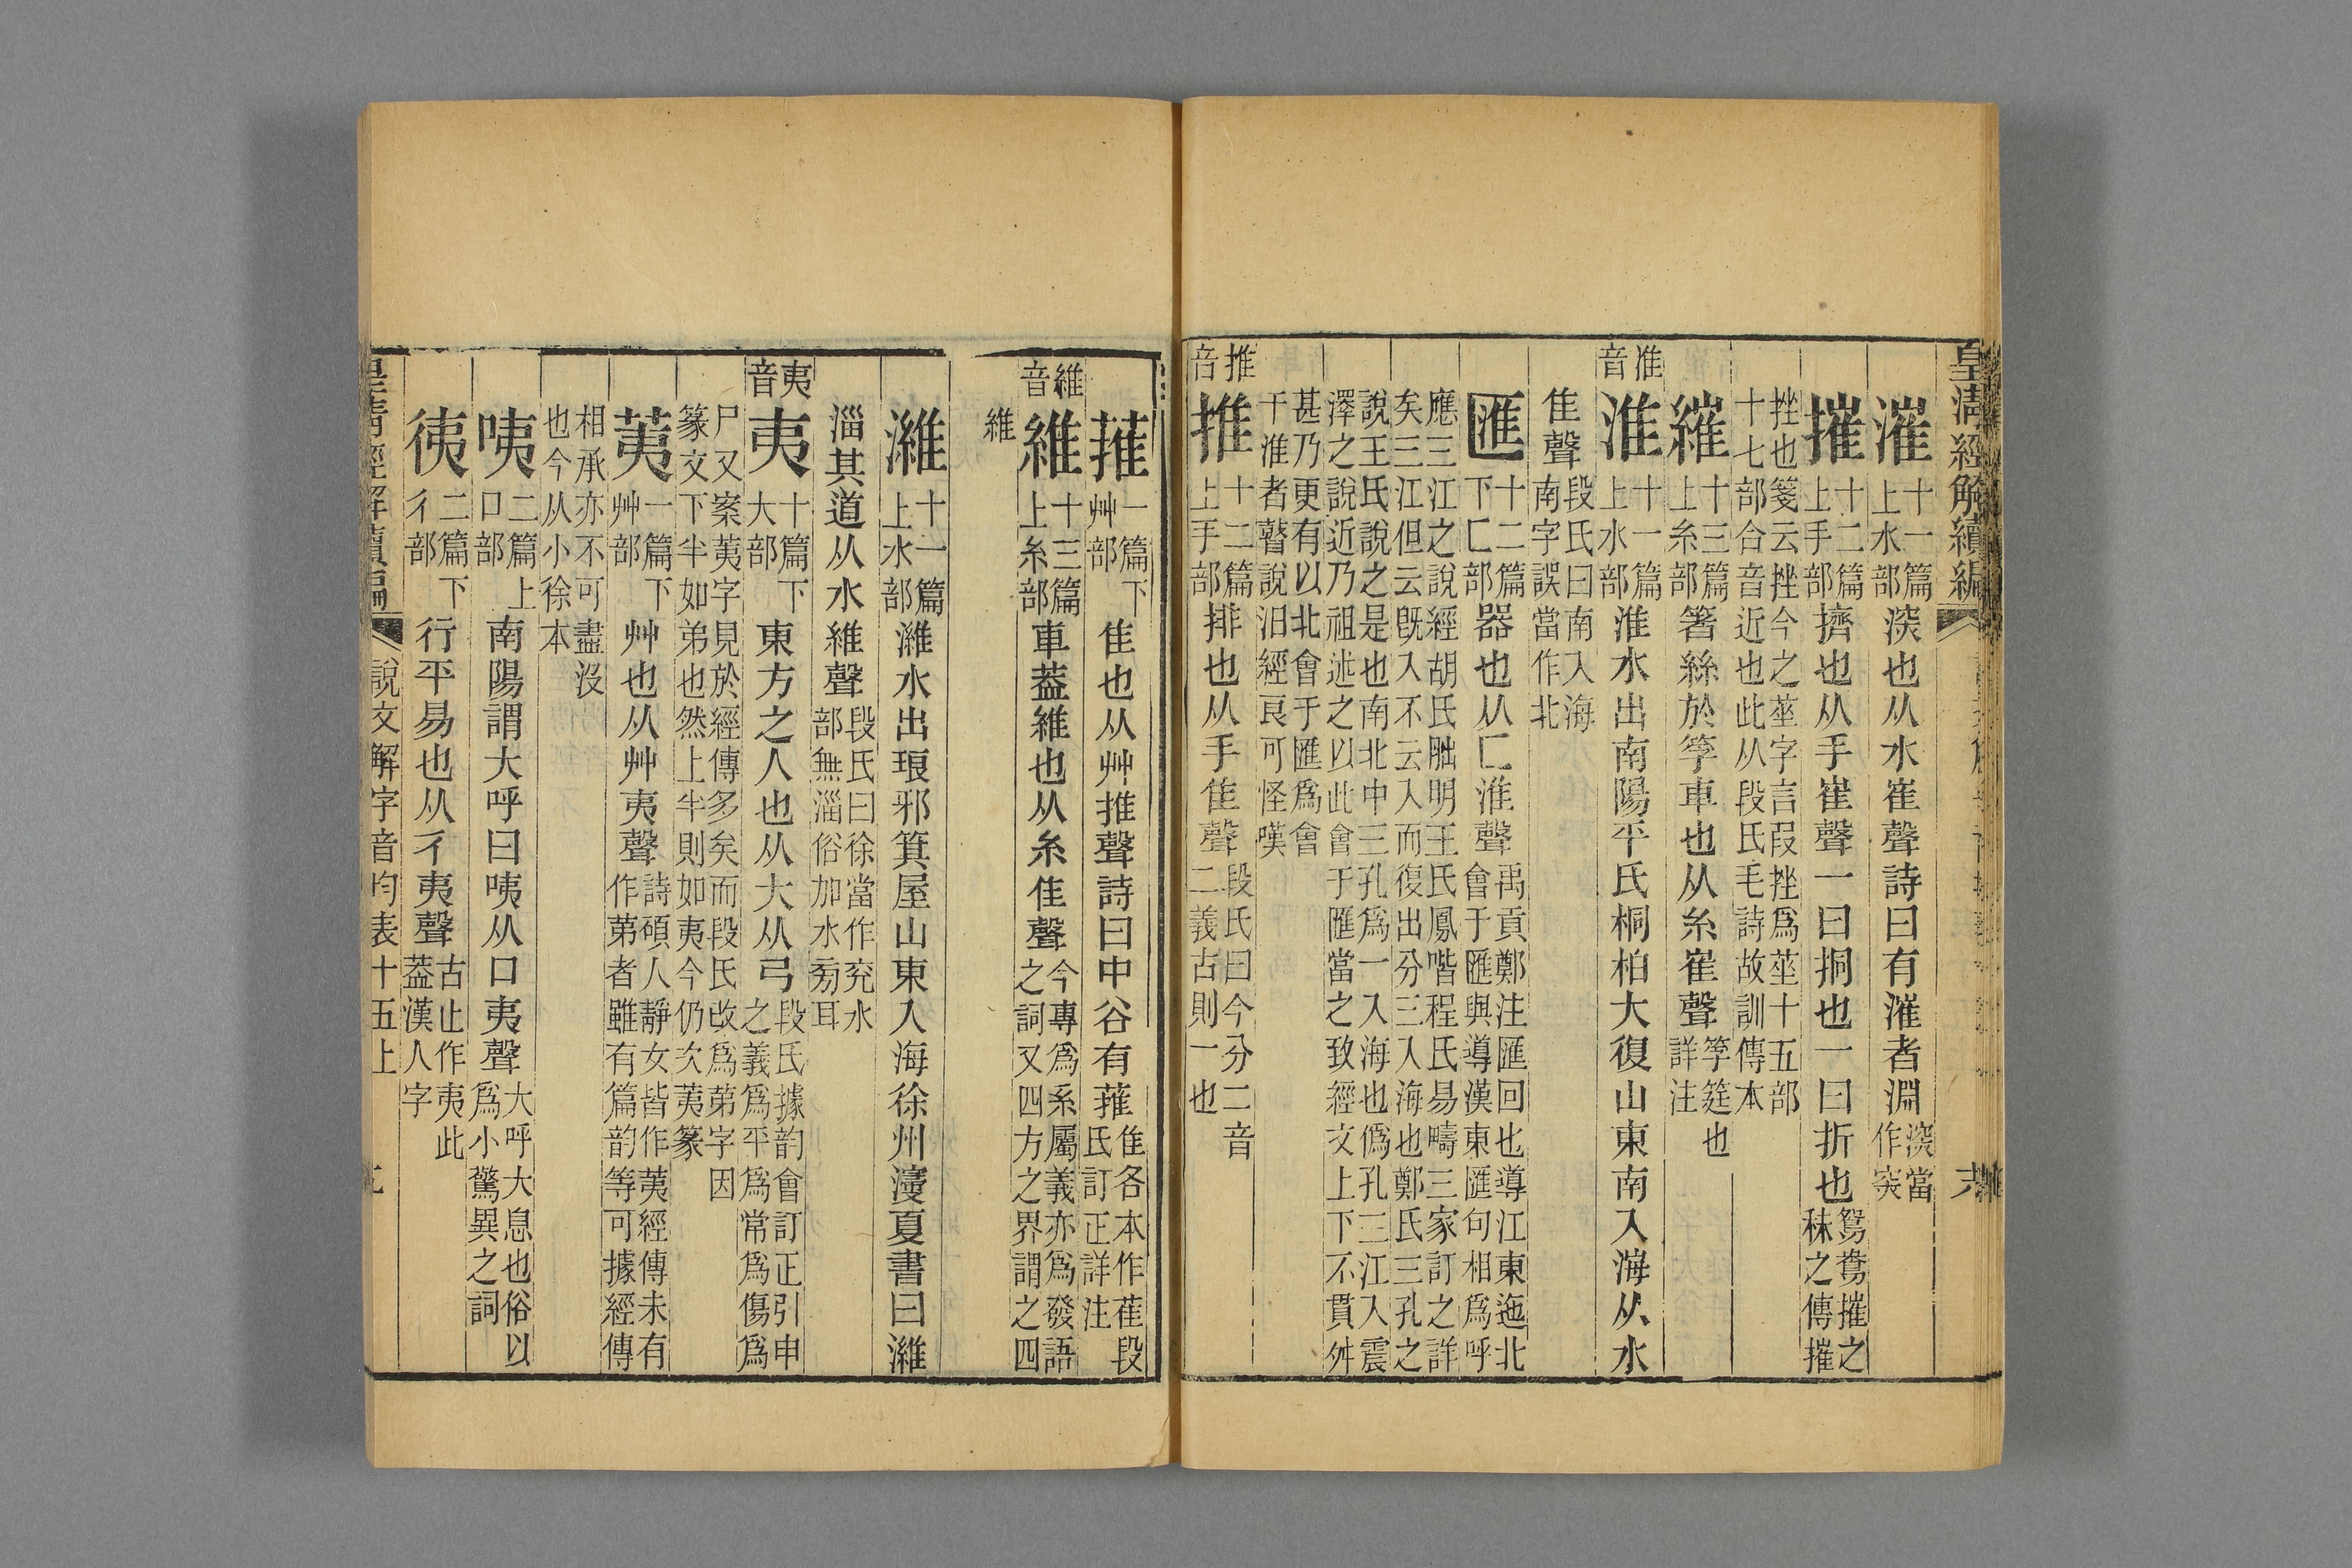 皇清經解續編
六
漼十一篇上水部深也从水崔聲詩曰有漼者淵深當作㴱
摧十二篇上手部擠也从手崔聲一曰挏也一曰折也鴛鴦摧之秣之傳摧
挫也箋云挫今之莝字言叚挫爲莝十五部十七部合音近也此从段氏毛詩故訓傳本
繀十三篇上糸部箸絲於筟車也从糸崔聲筟筳也詳注
淮音淮十一篇上水部淮水出南陽平氏桐柏大復山東南入海从水
隹聲段氏曰南入海南字誤當作北
匯十二篇下匚部器也从匚淮聲禹貢鄭注匯回也導江東迤北會于匯與導漢東匯句相爲呼
應三江之說經胡氏朏明王氏鳳喈程氏易疇三家訂之詳矣三江但云旣入不云入而復出分三入海也鄭氏三孔之
說王氏說之是也南北中三孔爲一入海也僞孔三江入震澤之說近乃祖述之以此會于匯當之致經文上下不貫舛
甚乃更有以北會于匯爲會于淮者瞽說汨經良可怪嘆
推音推十二篇上手部排也从手隹聲段氏曰今分二音二義古則一也
蓷一篇下艸部隹也从艸推聲詩曰中谷有蓷隹各本作萑段氏訂正詳注
維音維十三篇上糸部車葢維也从糸隹聲今專爲系屬義亦爲發語之詞又四方之界謂之四
維
濰十一篇上水部濰水出琅邪箕屋山東入海徐州濅夏書曰濰
淄其道从水維聲段氏曰徐當作兖水部無淄俗加水㫄耳
夷音夷十篇下大部東方之人也从大从弓段氏據韵會訂正引申之義爲平爲常爲傷爲
尸又案荑字見於經傳多矣而段氏改爲苐字因篆文下半如弟也然上半則如夷今仍次荑篆
荑一篇下艸部艸也从艸夷聲詩碩人靜女皆作荑經傳未有作苐者雖有篇韵等可據經傳
相承亦不可盡沒也今从小徐本
咦二篇上口部南陽謂大呼曰咦从口夷聲大呼大息也俗以爲小驚異之詞
徺二篇下彳部行平易也从彳夷聲古止作夷此葢漢人字
皇清經解續編
說文解字音均表十五上